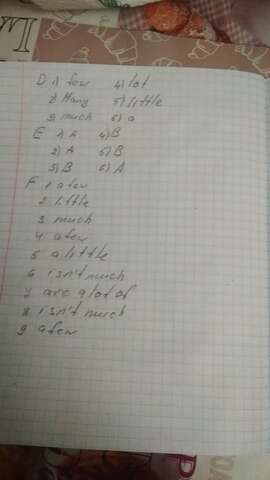 D 1) few 4) lot
2) Many 5) little
3 much 6) a
E 1) A 4) B
2) A 5) B
3) B 6) A
F 1 a few
2 little
3 much
4 a few
5 a little
6 isn't much
7 are a lot of
8 isn't much
9 a few